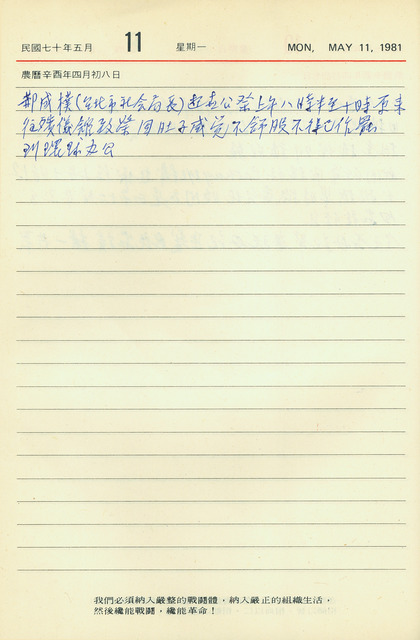 民國七十年五月 11 星期一 MON, MAY 11, 1981
農曆辛酉年四月初八日
郝成樸(台北市社会局長)起去公祭上午八時半至十時原来
往殯儀館致祭因肚子感覚不舒服不得已作罷
到環球办公
我們必須納入嚴整的戰鬪體，納入嚴正的組織生活，
然後纔能戰鬪，纔能革命！